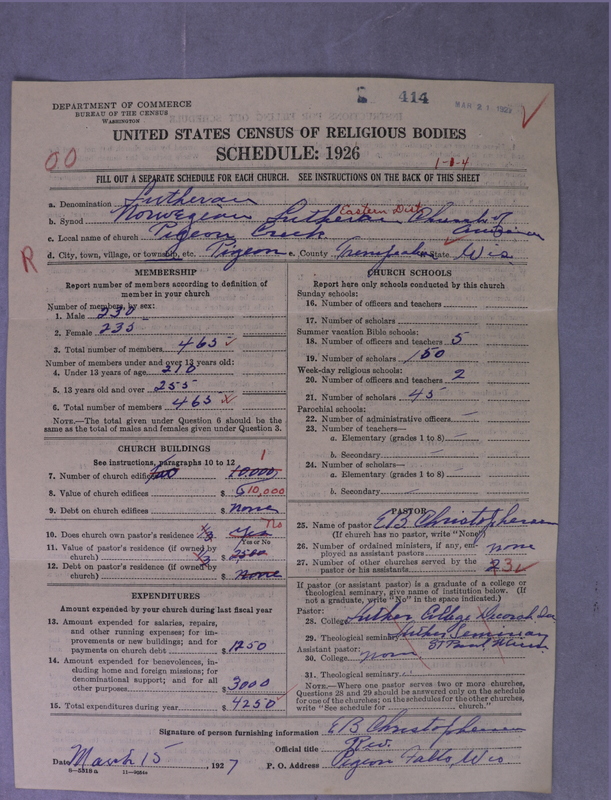 DEPARTMENT OF COMMERCE
BUREAU OF THE CENSUS
WASHINGTON
414
MAR 21 1927
UNITED STATES CENSUS OF RELIGIOUS BODIES
SCHEDULE: 1926
1-1-4
FILL OUT A SEPARATE SCHEDULE FOR EACH CHURCH. SEE INSTRUCTIONS ON THE BACK OF THIS SHEET
a. Denomination Lutheran
b. Synod Norwegian Lutheran Church of America
Eastern Dist
c. Local name of church Pigeon Creek
d. City, town, village, or township, etc. Pigeon e. County Trempealeau f. State Wis.
R
MEMBERSHIP
Report number of members according to definition of
member in your church
Number of members by sex:
1. Male 230
2. Female 235
3. Total number of members 465
Number of members under and over 13 years old:
4. Under 13 years of age 210
5. 13 years old and over 255
6. Total number of members 465
NOTE.—The total given under Question 6 should be the
same as the total of males and females given under Question 3.
CHURCH BUILDINGS
See instructions, paragraphs 10 to 12
7. Number of church edifices 10,000 1
8. Value of church edifices $ 10,000
9. Debt on church edifices $ none
10. Does church own pastor's residence? Yes No
Yes or No
11. Value of pastor's residence (if owned by
church) $ 2500
12. Debt on pastor's residence (if owned by
church) $ None
EXPENDITURES
Amount expended by your church during last fiscal year
13. Amount expended for salaries, repairs,
and other running expenses; for im-
provements or new buildings; and for
payments on church debt $ 1250
14. Amount expended for benevolences, in-
cluding home and foreign missions; for
denominational support; and for all
other purposes $ 3000
15. Total expenditures during year $ 4250
CHURCH SCHOOLS
Report here only schools conducted by this church
Sunday schools:
16. Number of officers and teachers
17. Number of scholars
Summer vacation Bible schools:
18. Number of officers and teachers 5
19. Number of scholars 150
Week-day religious schools:
20. Number of officers and teachers 2
21. Number of scholars 45
Parochial schools:
22. Number of administrative officers
23. Number of teachers—
a. Elementary (grades 1 to 8)
b. Secondary
24. Number of scholars—
a. Elementary (grades 1 to 8)
b. Secondary
PASTOR
25. Name of pastor E B Christophersen
(If church has no pastor, write "None")
26. Number of ordained ministers, if any, em-
ployed as assistant pastors none
27. Number of other churches served by the
pastor or his assistants 3
If pastor (or assistant pastor) is a graduate of a college or
theological seminary, give name of institution below. (If
not a graduate, write "No" in the space indicated.)
Pastor:
28. College Luther College Decorah
29. Theological seminary Luther Seminary
St Paul, Minn
Assistant pastor:
30. College None
31. Theological seminary
NOTE.—Where one pastor serves two or more churches,
Questions 28 and 29 should be answered only on the schedule
for one of the churches; on the schedules for the other churches,
write "See schedule for church."
Signature of person furnishing information E B Christophersen
Official title Rev.
Date March 15, 1927 P. O. Address Pigeon Falls, Wis
8—5518a 11—9084